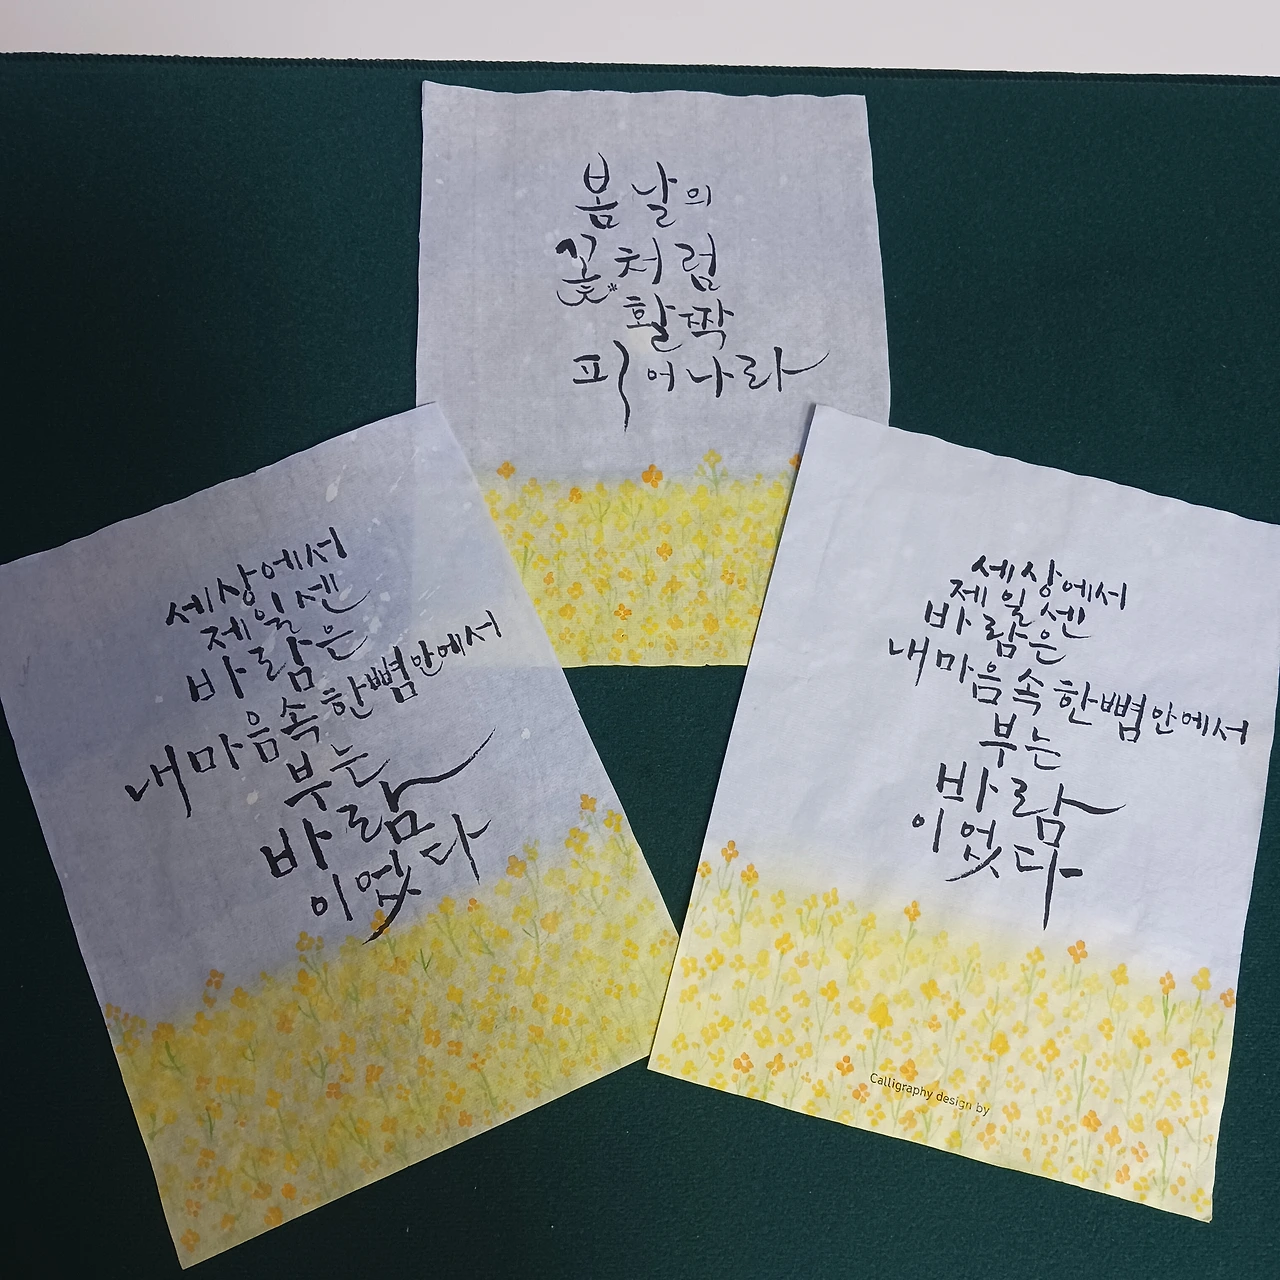 봄날의
꽃처럼
활짝
피어나라
세상에서
제일센
바람은
내마음속한뼘안에서
부는
바람
이었다
세상에서
제일센
바람은
내마음속한뼘안에서
부는
바람
이었다
Calligraphy design by